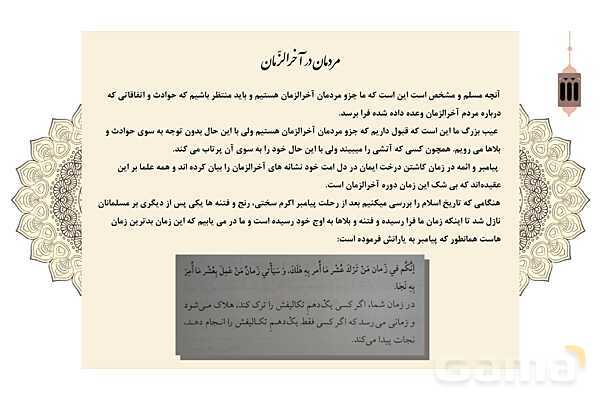 مردمان در آخرالزّمان
آنچه مسلم و مشخص است این است که ما جزو مردمان آخرالزمان هستیم و باید منتظر باشیم که حوادث و اتفاقاتی که
درباره مردم آخرالزمان وعده داده شده فرا برسد.
عیب بزرگ ما این است که قبول داریم که جزو مردمان آخرالزمان هستیم ولی با این حال بدون توجه به سوی حوادث و
بلاها می رویم. همچون کسی که آتشی را میبیند ولی با این حال خود را به سوی آن پرتاب می کند.
پیامبر و ائمه در زمان کاشتن درخت ایمان در دل امت خود نشانه های آخرالزمان را بیان کرده اند و همه علما بر این
عقیده‌اند که بی شک این زمان دوره آخرالزمان است.
هنگامی که تاریخ اسلام را بررسی میکنیم بعد از رحلت پیامبر اکرم سختی، رنج و فتنه ها یکی پس از دیگری بر مسلمانان
نازل شد تا اینکه زمان ما فرا رسیده و فتنه و بلاها به اوج خود رسیده است و ما در می یابیم که این زمان بدترین زمان
هاست همانطور که پیامبر به یارانش فرموده است:
إنَّکُم في زَمان مَنْ تَرَکَ عُشْرَ ما أُمِرَ بِهِ هَلَکَ، وَ سَیَأْتي زَمانٌ مَنْ عَمِلَ بِعُشْرِ ما أُمِرَ
بِهِ نَجَا.
در زمان شما، اگر کسی یک‌دهم تکالیفش را ترک کند، هلاک می‌شود
و زمانی می‌رسد که اگر کسی فقط یک‌دهم تکالیفش را انجام دهد،
نجات پیدا می‌کند.
Gama